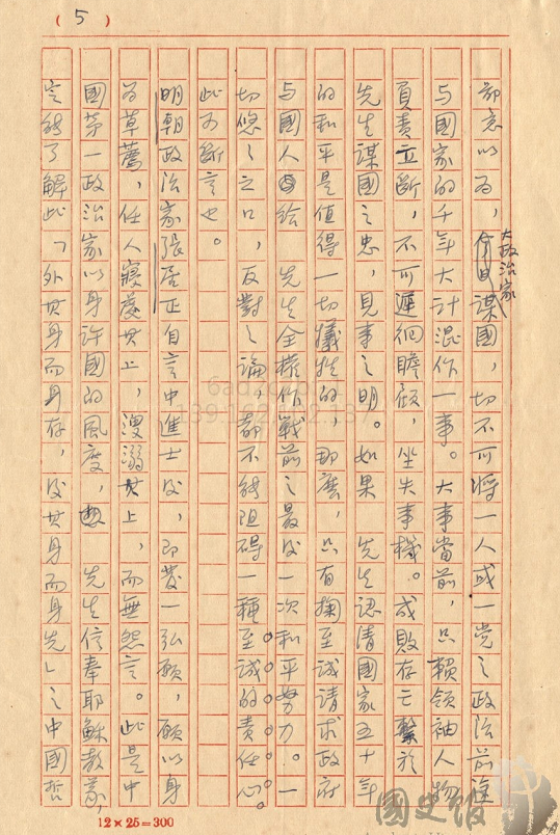 (5)
鄙意以为，大政治家谋國，切不可將一人或一党之政治前途
与國家的千年大計混作一事。大事當前，只賴領袖人物
負責立斷，不可遲徊瞻顧，坐失事機。成敗存亡繫於
先生謀國之忠，見事之明。如果　先生認清國家五十年
的和平是值得一切犧牲的，那麽，只有掬至誠請求政府
与國人授给　先生全權作戰前之最後一次和平努力。一
切悠之之口，反對之論，都不能阻碍一種至誠的責任心。
此可斷言也。
明朝政治家張居正自言中進士後，即發一弘願，願以身
為草薦，任人寢處其上，溲溺其上，而無怨言。此是中
國第一政治家以身許國的風度，想　先生信奉耶穌教義，
定能了解此「外其身而身存，後其身而身先」之中國哲
12×25=300
國史館